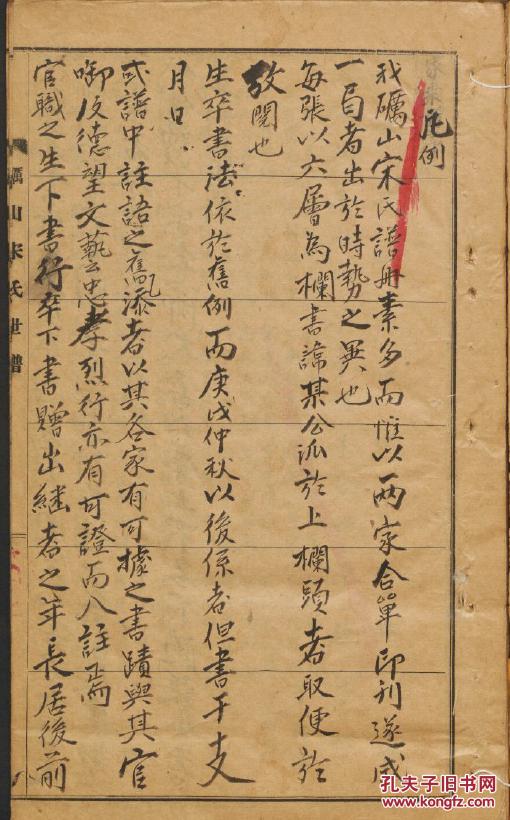 凡例
我礪山宋氏譜冊素多而惟以兩家合單印刊遂成
一局者出於時勢之異也
每張以六層為欄書諱某公派於上欄頭者取便於
攷閱也
生卒書法依於舊例而庚戌仲秋以後係者但書干支
月日
或譜中註語之舊添者以其各家有可據之書蹟與其官
啣及德望文藝忠孝烈行亦有可證而入註焉
官職之生下書行卒下書贈出繼者之年長居後前
礪山宋氏世譜
孔夫子旧书网
www.kongfz.com